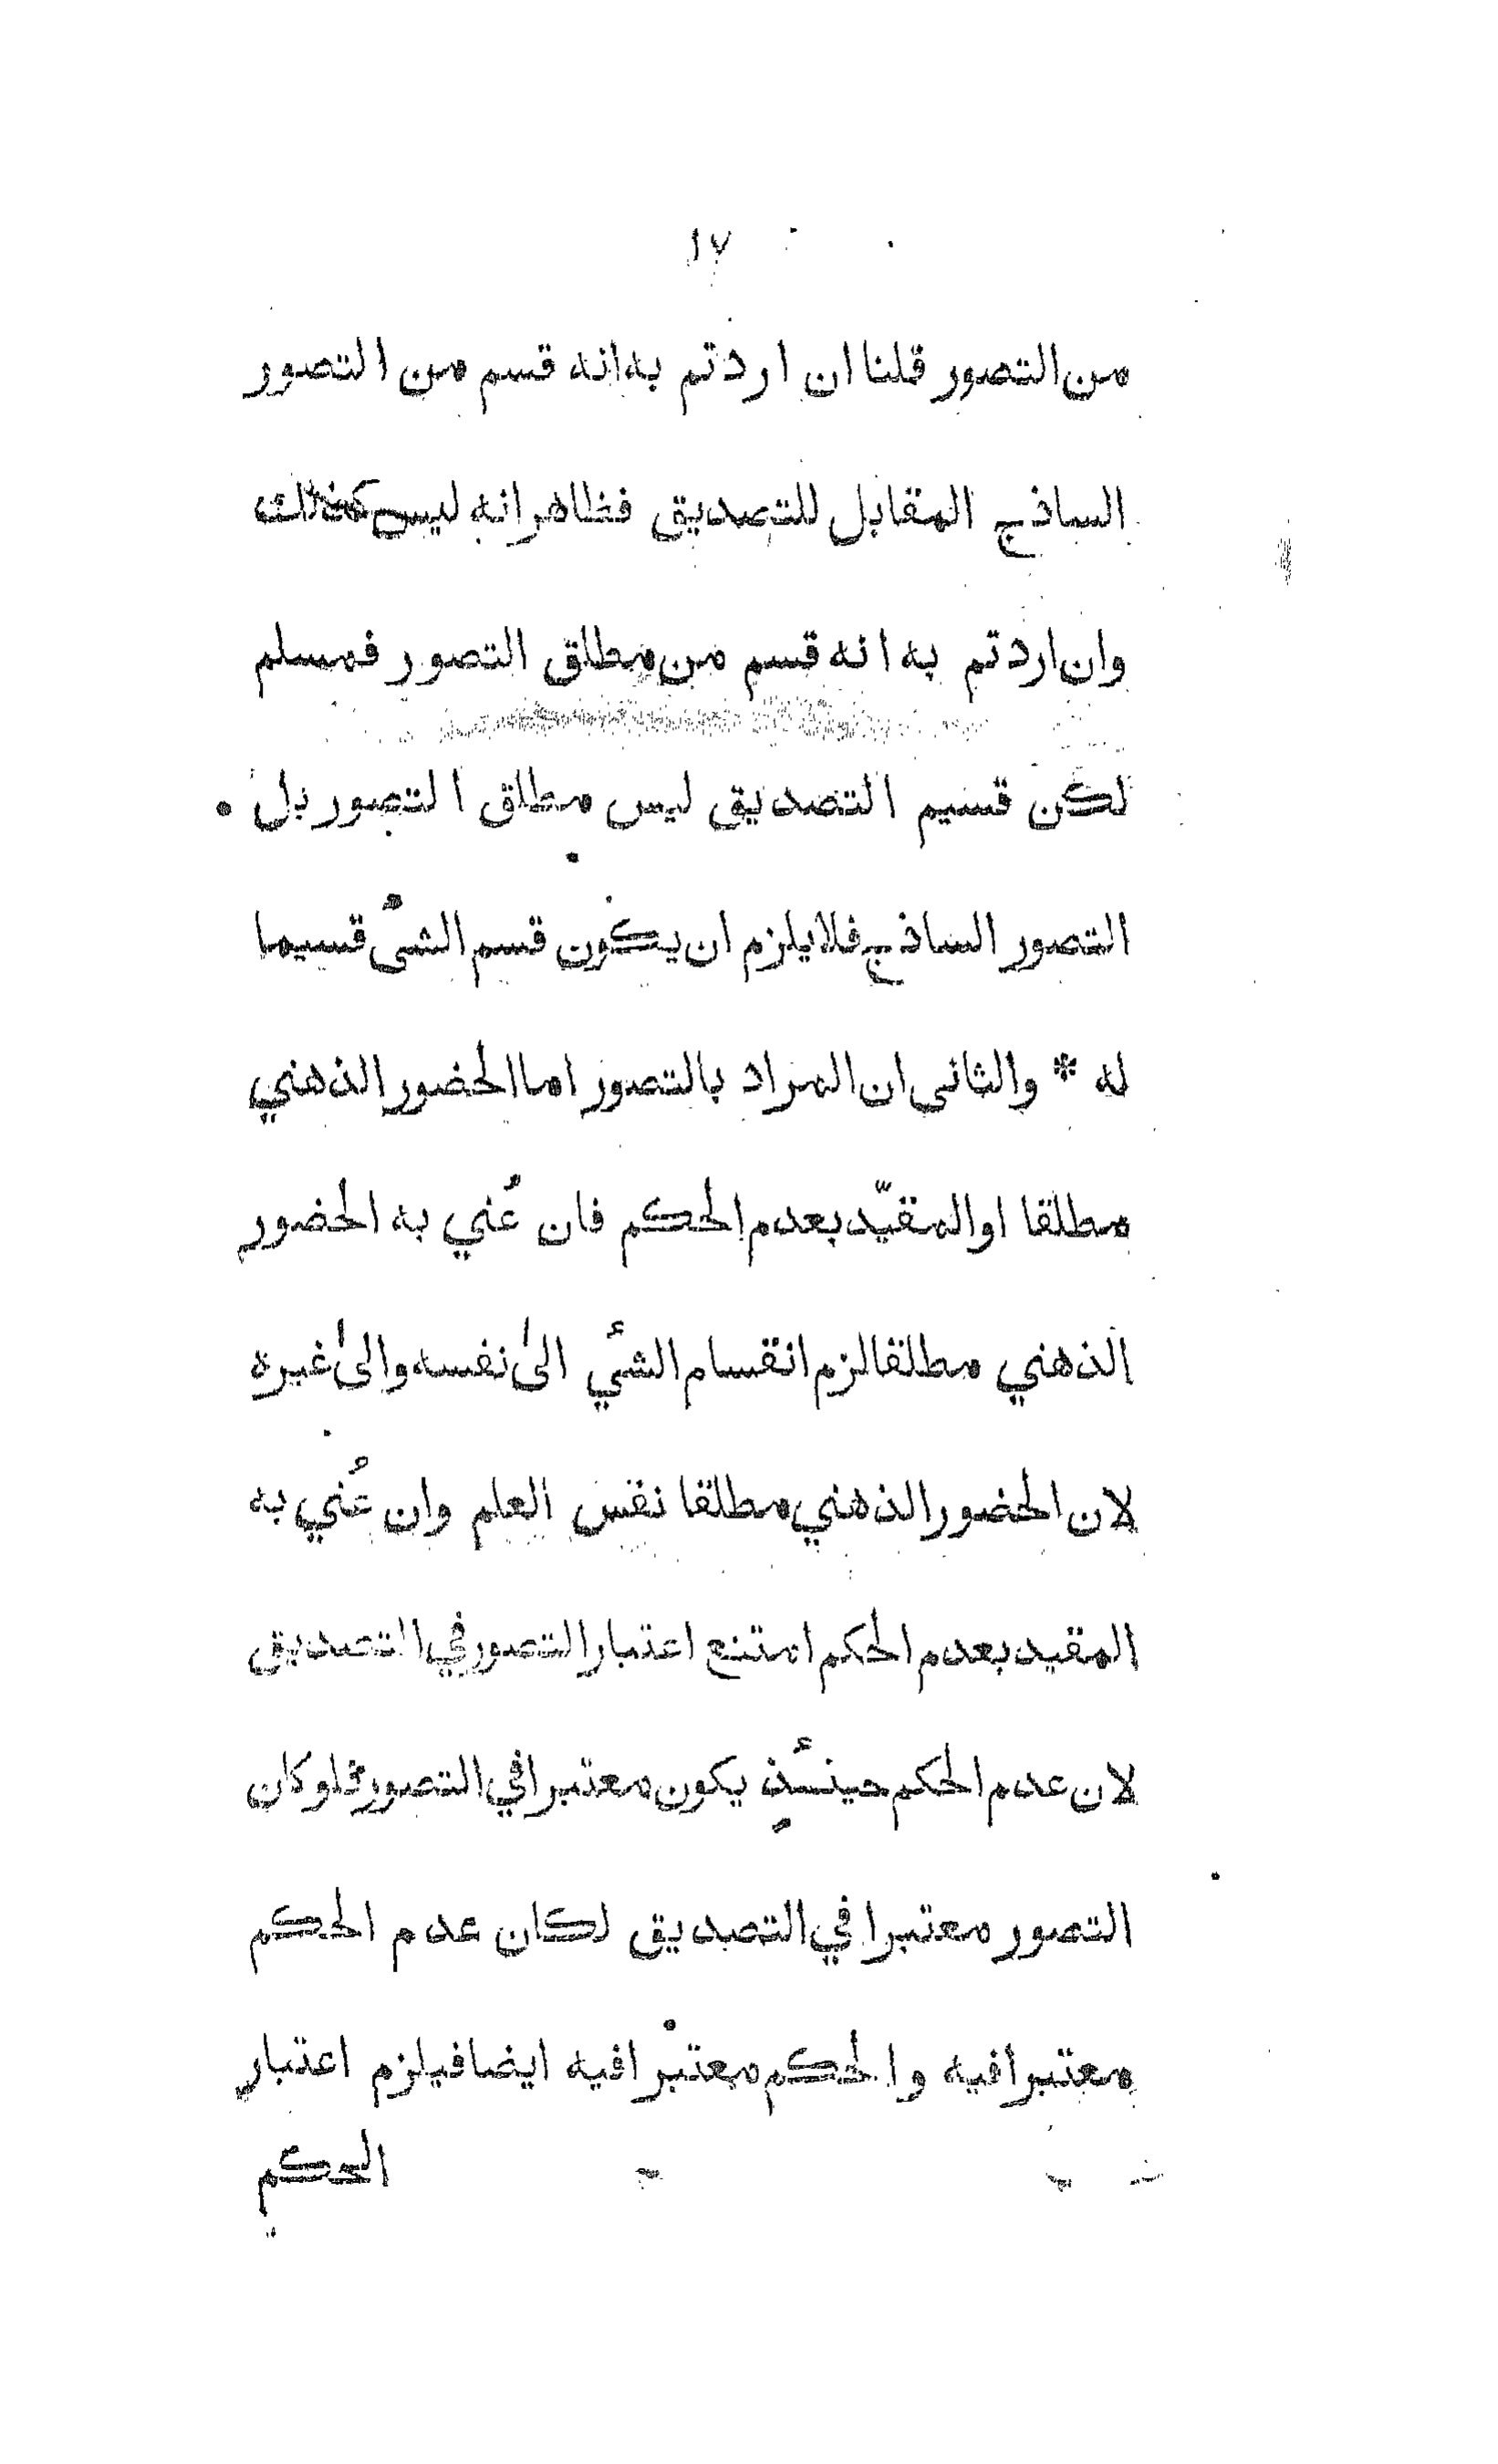 ١٧
من التصور قلنا ان اردتم به انه قسم من التصور
الساذج المقابل للتصديق فظاهر انه ليس كذلك
وان اردتم به انه قسم من مطلق التصور فمسلم
لكن قسيم التصديق ليس مطلق التصور بل
التصور الساذج فلا يلزم ان يكون قسم الشئ قسيما
له * والثانى ان المراد بالتصور اما الحضور الذهني
مطلقا او المقيّد بعدم الحكم فان عُني به الحضور
الذهني مطلقا لزم انقسام الشئي الىٰ نفسه والىٰ غيره
لان الحضور الذهني مطلقا نفس العلم وان عُني به
المقيد بعدم الحكم امتنع اعتبار التصور في التصديق
لان عدم الحكم حينئذٍ يكون معتبرا في التصور فلو كان
التصور معتبرا في التصديق لكان عدم الحكم
معتبرا فيه والحكم معتبرا فيه ايضا فيلزم اعتبار
الحكم